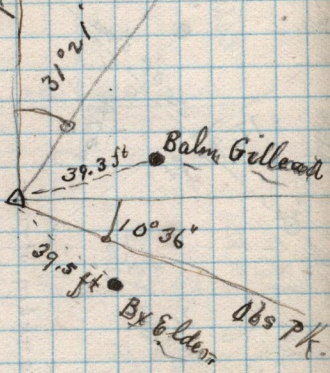 31°21'
39.3 ft
Balm Gillead
10°36"
39.5 ft
Bx Elder
Obs Pk.